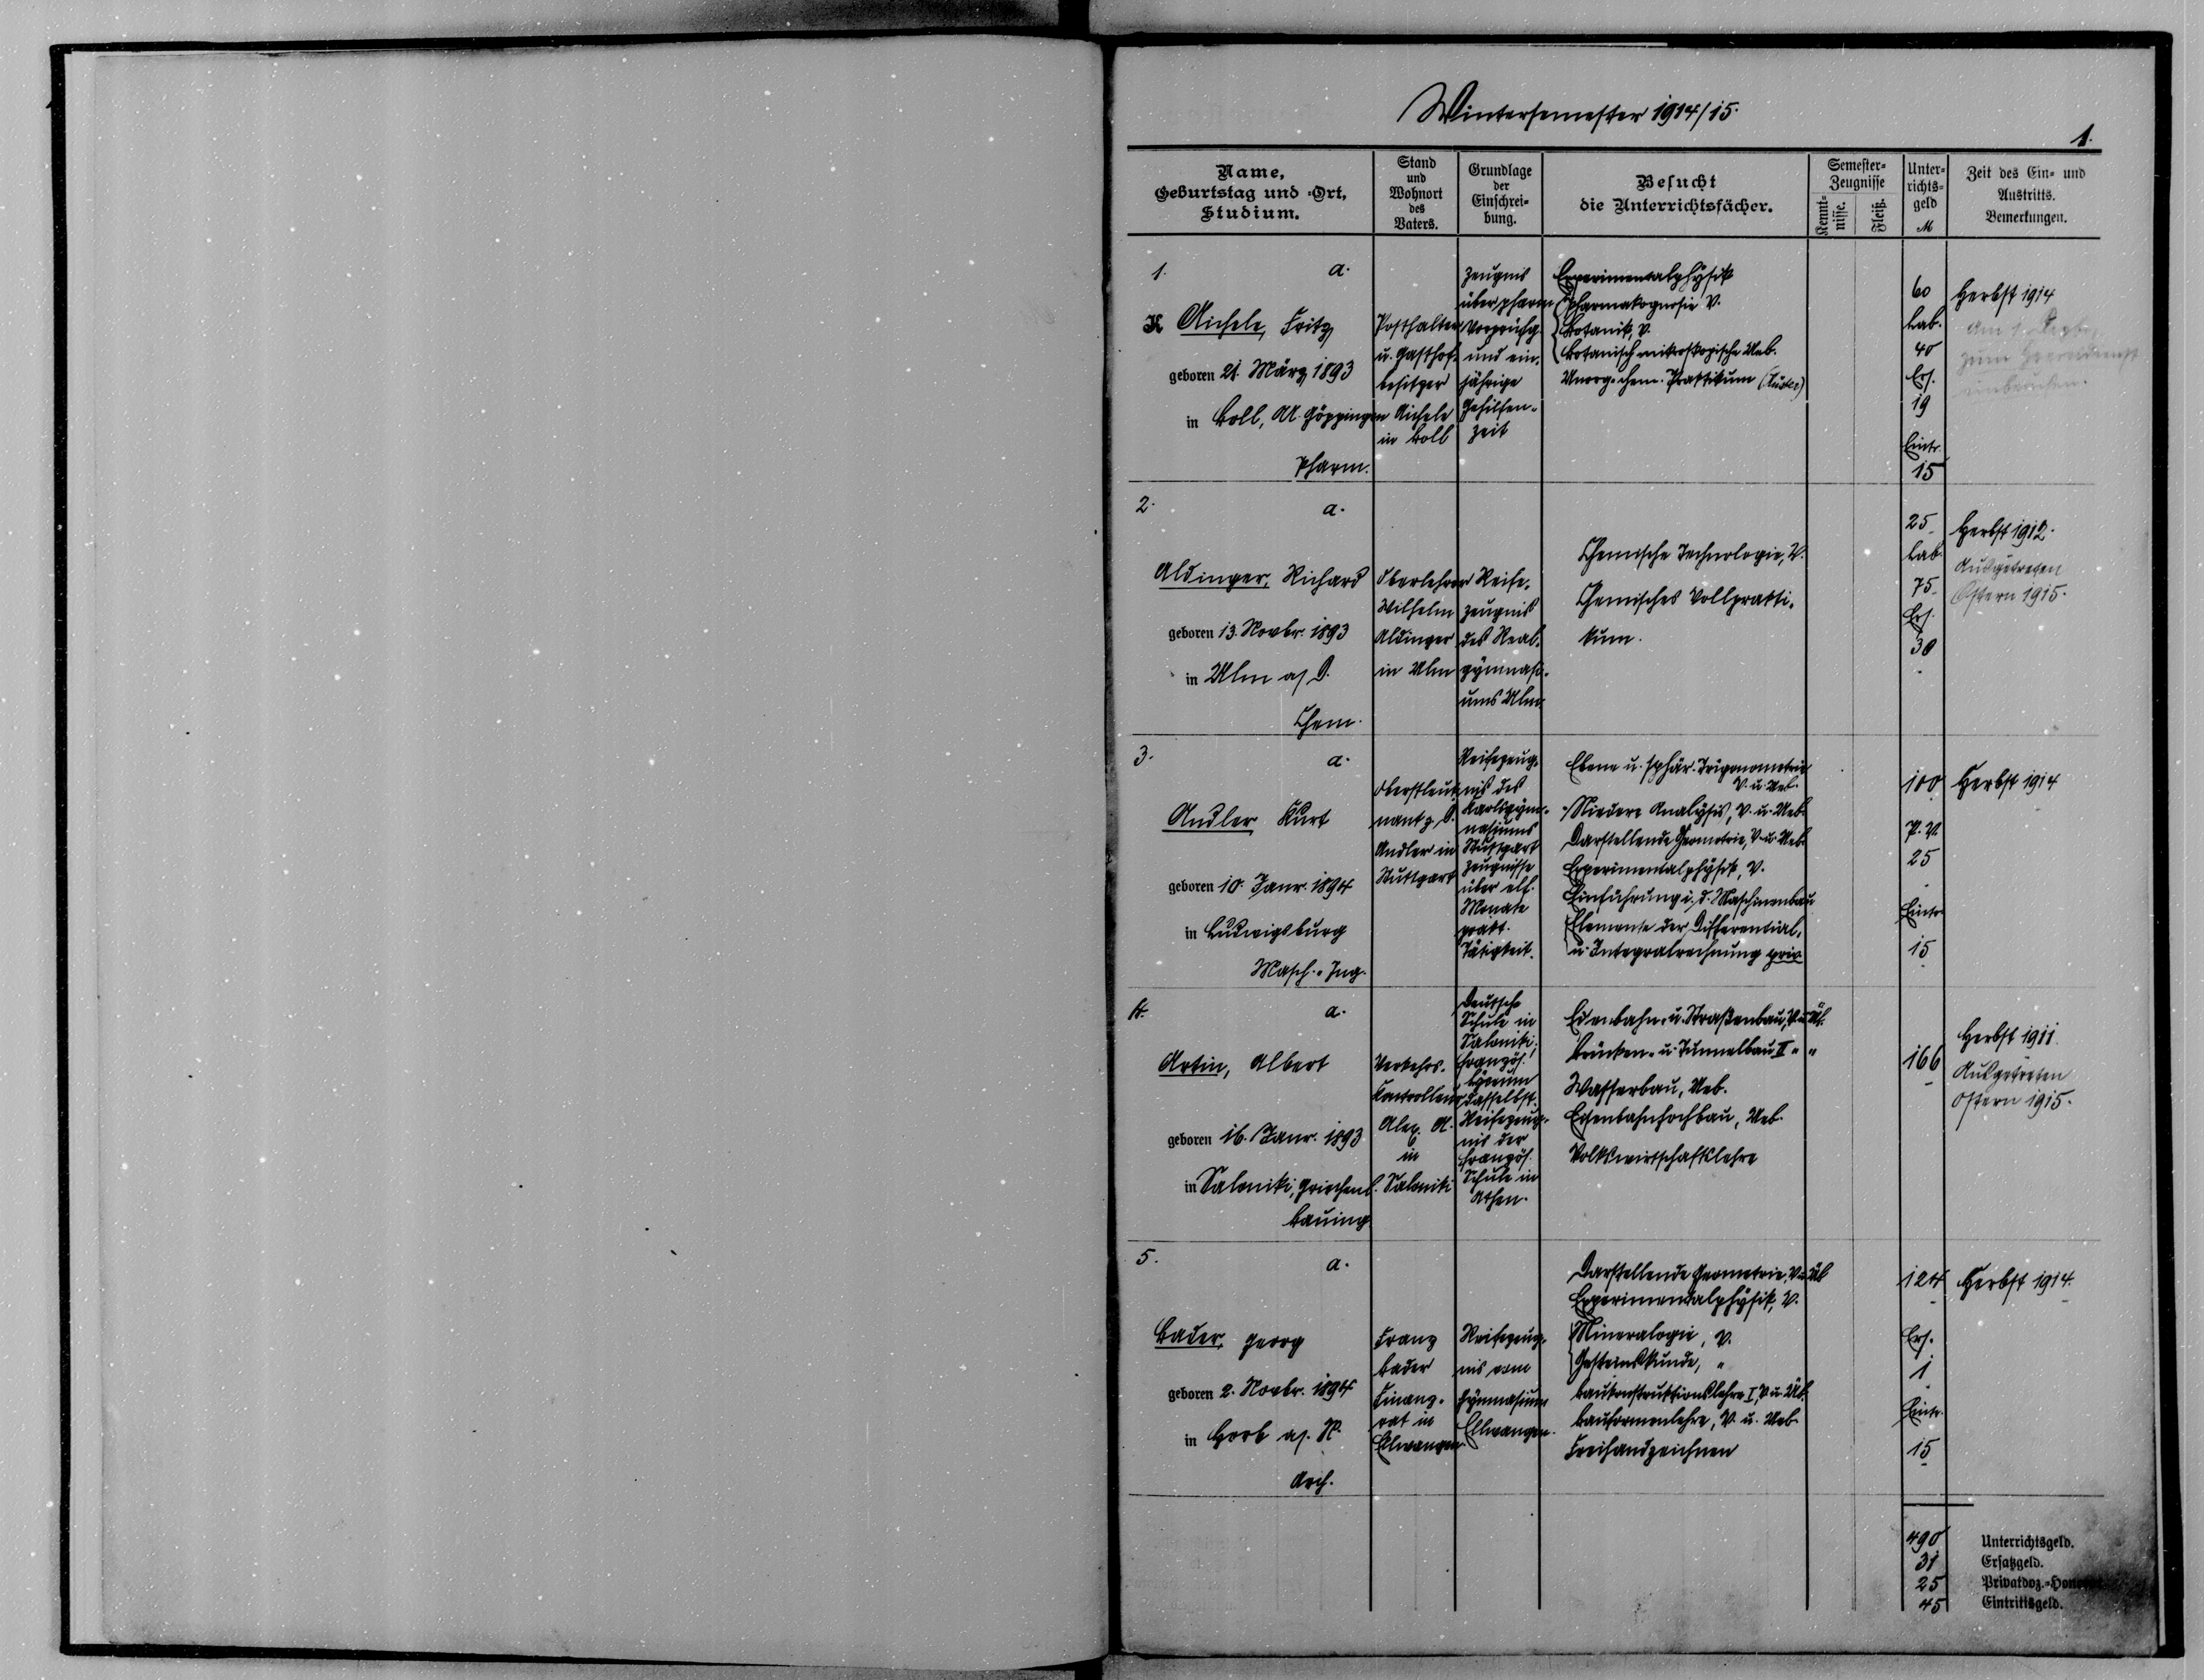 Wintersemester 1914/15.
1.
Name,
Geburtstag und -Ort,
Studium.
Stand
und
Wohnort
des
Vaters.
Grundlage
der
Einschrei-
bung.
Besucht
die Unterrichtsfächer.
Semester-
Zeugnisse
Kennt-
nisse.
Fleiß.
Unter-
richts-
geld
M
Zeit des Ein- und
Austritts.
Bemerkungen.
1.
a.
K Aichele, Fritz
geboren 21. März 1893
in Boll, OA. Göppingen
Pharm.
Posthalter
u. Gasthof-
besitzer
Aichele
in Boll
Zeugnis
über pharm.
Vorprüfg.
und ein-
jährige
Gehilfen-
zeit
Experimentalphysik
Pharmakognosie V.
Botanik, V.
Botanisch-mikroskopische Ueb.
Unorg.-chem. Praktikum
60
Lab.
40
Ers.
19
Eintr.
15
Herbst 1914
am 1.
zum Heeresdienst
einberufen.
2.
a.
Aldinger, Richard
geboren 13. Novbr. 1893
in Ulm a/D.
Chem.
Oberlehrer
Wilhelm
Aldinger
in Ulm
Reife-
zeugnis
des Real-
gymnasi-
ums Ulm
Chemische Technologie, V.
Chemisches Vollprakti-
kum.
25
Lab.
75
Ers.
30
Herbst 1912.
Ausgetreten
Ostern 1915.
3.
a.
Andler Kurt
geboren 10. Janr. 1894
in Ludwigsburg
Masch.-Ing.
Oberstleut-
nant z. D.
Andler in
Stuttgart
Reifezeug-
nis des
Karlsgym-
nasiums
Stuttgart
Zeugnisse
über elf
Monate
prakt.
Tätigkeit.
Ebene u. sphär. Trigonometrie
V. u. Ueb.
Niedere Analysis, V. u. Ueb.
Darstellende Geometrie, V. u. Ueb.
Experimentalphysik, V.
Einführung i. d. Maschinenbau
Elemente der Differential-
u. Integralrechnung priv.
100
P. D.
25
Eintr.
15
Herbst 1914
4.
a.
Artin, Albert
geboren 16. Janr. 1893
in Saloniki, Griechenl.
Bauing.
Verkehrs-
Kontrolleur
Alex. A.
in
Saloniki
Deutsche
Schule in
Saloniki;
französ.
Lyceum
daselbst.
Reifezeug-
nis der
französ.
Schule in
Athen.
Eisenbahn- u. Straßenbau, V. u. Üb.
Brücken- u. Tunnelbau II " "
Wasserbau, Ueb.
Eisenbahnhochbau, Ueb.
Volkswirtschaftslehre
166
Herbst 1911.
Ausgetreten
Ostern 1915.
5.
a.
Bader, Georg
geboren 2. Novbr. 1894
in Horb a/N.
Arch.
Franz
Bader
Finanz-
rat in
Ellwangen
Reifezeug-
nis vom
Gymnasium
Ellwangen.
Darstellende Geometrie, V. u. Üb.
Experimentalphysik, V.
Mineralogie, V.
Gesteinskunde, "
Baukonstruktionslehre I, V. u. Üb.
Bauformenlehre, V. u. Ueb.
Freihandzeichnen
124
Ers.
1
Eintr.
15
Herbst 1914.
490 Unterrichtsgeld.
31 Ersatzgeld.
25 Privatdoz.-
45 Eintrittsgeld.